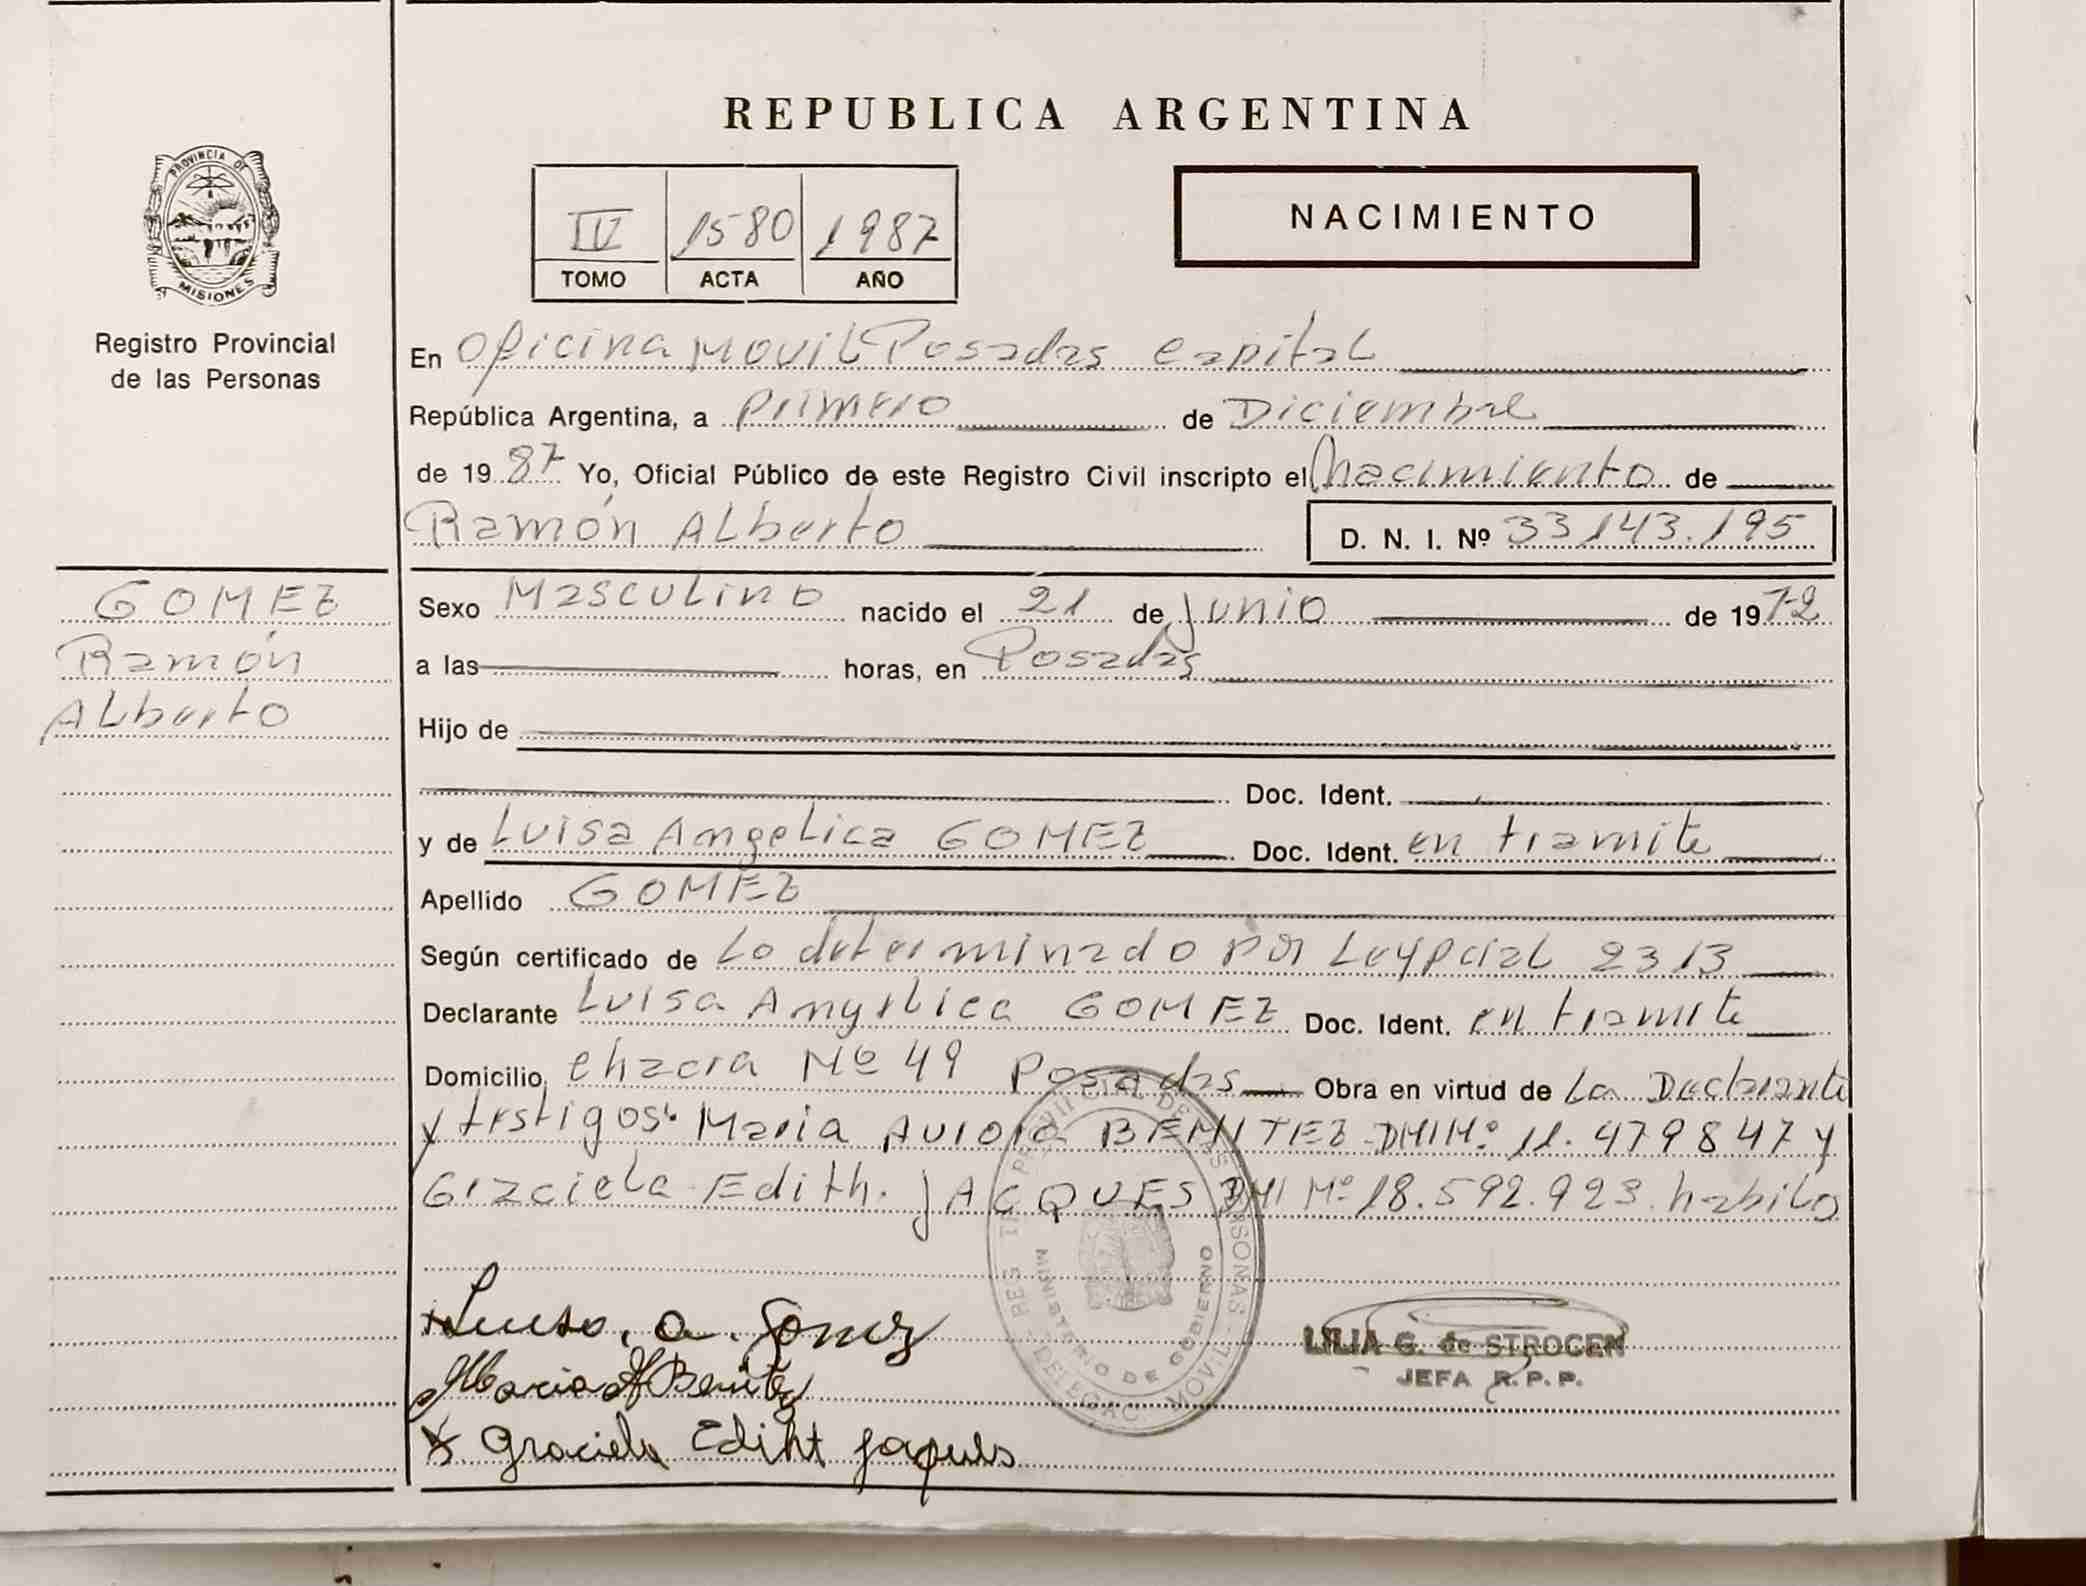 REPUBLICA ARGENTINA
PROVINCIA DE
MISIONES
Registro Provincial
de las Personas
IV 1580 1987
TOMO ACTA AÑO
NACIMIENTO
En Oficina Movil Posadas Capital
República Argentina, a Primero de Diciembre
de 1987 Yo, Oficial Público de este Registro Civil inscripto el Nacimiento de
Ramón Alberto D. N. I. Nº 33143.195
GOMEZ
Ramón
Alberto
Sexo Masculino nacido el 21 de Junio de 1972
a las horas, en Posadas
Hijo de
Doc. Ident.
y de Luisa Angelica GOMEZ Doc. Ident. en tramite
Apellido GOMEZ
Según certificado de Lo determinado por Ley pcial 2313
Declarante Luisa Angelica GOMEZ Doc. Ident. en tramite
Domicilio chacra Nº 49 Posadas Obra en virtud de La Declarante
y testigos: Maria Aurora BENITEZ DNI Nº 11.479847 y
Graciela Edith. JACQUES DNI Nº 18.592.923. habiles
MINISTERIO DE GOBIERNO
DELEGAC. MOVIL
Luisa. a. Gomez
Maria A Benitez
Graciela Ediht Jaques
LILIA G. de STROCEN
JEFA R.P.P.